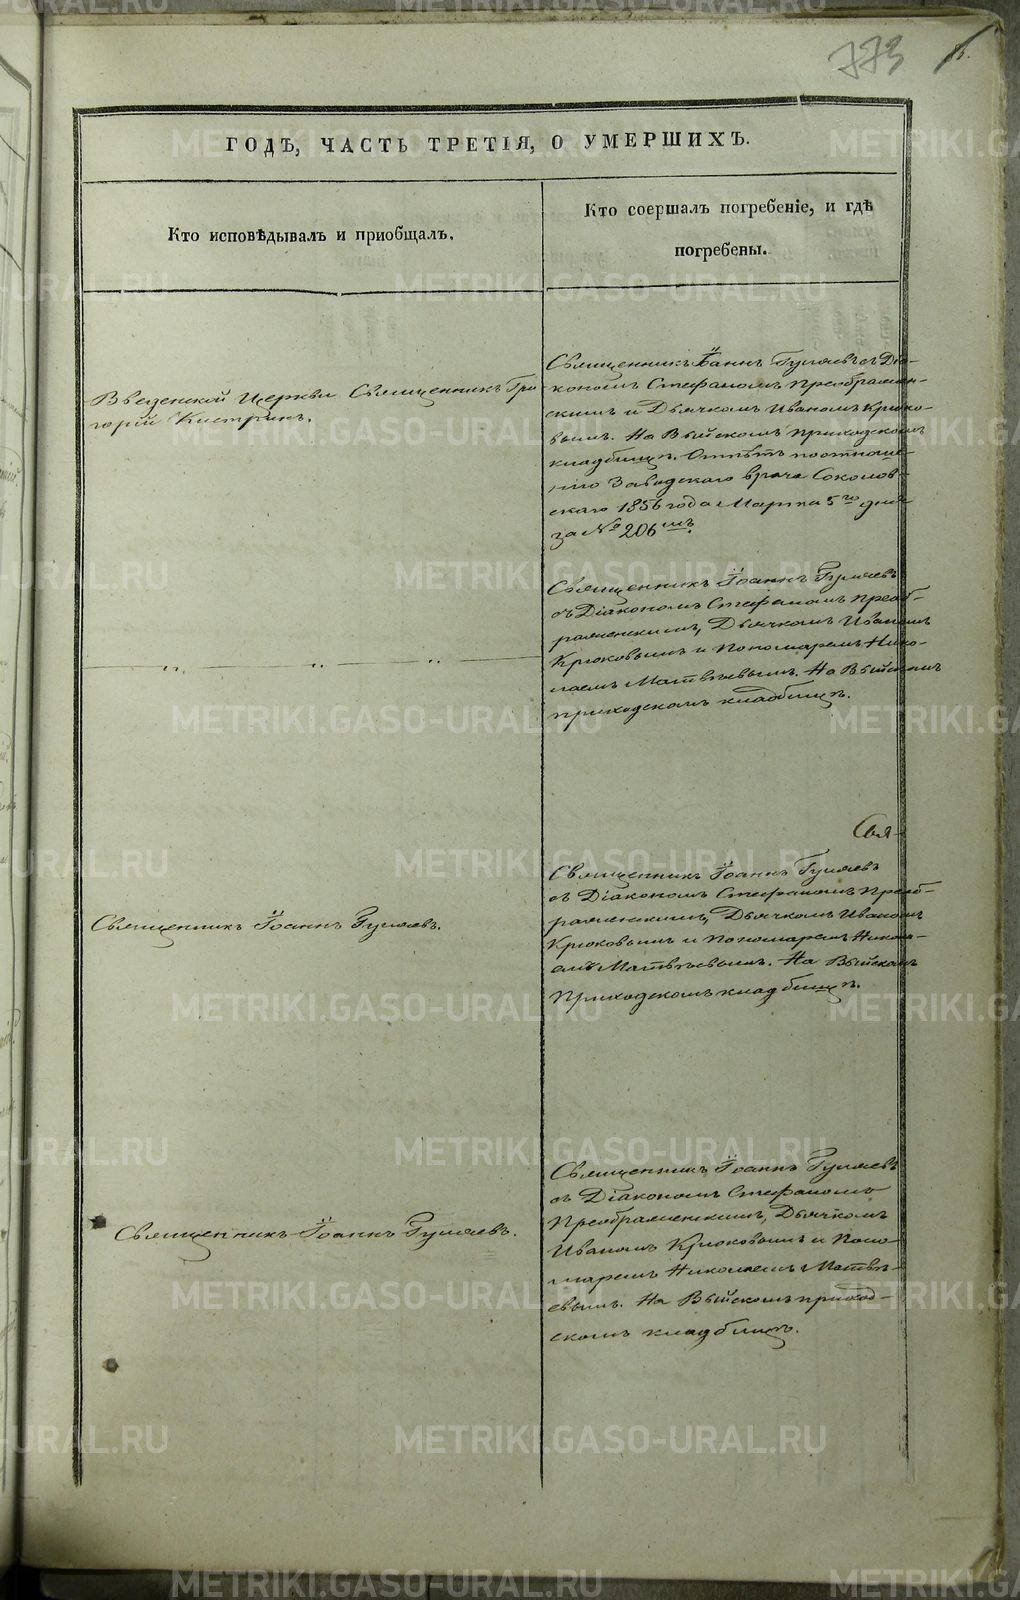 773
ГОДЪ, ЧАСТЬ ТРЕТІЯ, О УМЕРШИХЪ.
Кто исповѣдывалъ и приобщалъ.
Кто соершалъ погребеніе, и гдѣ
погребены.
Введенской Церкви Священникъ Гри-
горій Кистринъ.
Священникъ Іоаннъ Гуляевъ съ Діа-
кономъ Стефаномъ Преображен-
скимъ и Дьячкомъ Иваномъ Крюко-
вымъ. На Выйскомъ приходскомъ
кладбищѣ. Отпѣтъ по отноше-
нію Заводскаго врача Соколов-
скаго 1856 года Марта 5го дня
за № 206мъ.
Священникъ Іоаннъ Гуляевъ
съ Діакономъ Стефаномъ Преоб-
раженскимъ, Дьячкомъ Иваномъ
Крюковымъ и Пономаремъ Нико-
лаемъ Матвѣевымъ. На Выйскомъ
приходскомъ кладбищѣ.
Свя-
Священникъ Іоаннъ Гуляевъ.
Священникъ Іоаннъ Гуляевъ
съ Діакономъ Стефаномъ Преоб-
раженскимъ, Дьячкомъ Иваномъ
Крюковымъ и Пономаремъ Никола-
емъ Матвѣевымъ. На Выйскомъ
Приходскомъ кладбищѣ.
Священникъ Іоаннъ Гуляевъ.
Священникъ Іоаннъ Гуляевъ
съ Діакономъ Стефаномъ
Преображенскимъ, Дьячкомъ
Иваномъ Крюковымъ и Поно-
маремъ Николаемъ Матвѣ-
евымъ. На Выйскомъ приход-
скомъ кладбищѣ.
METRIKI.GASO-URAL.RU